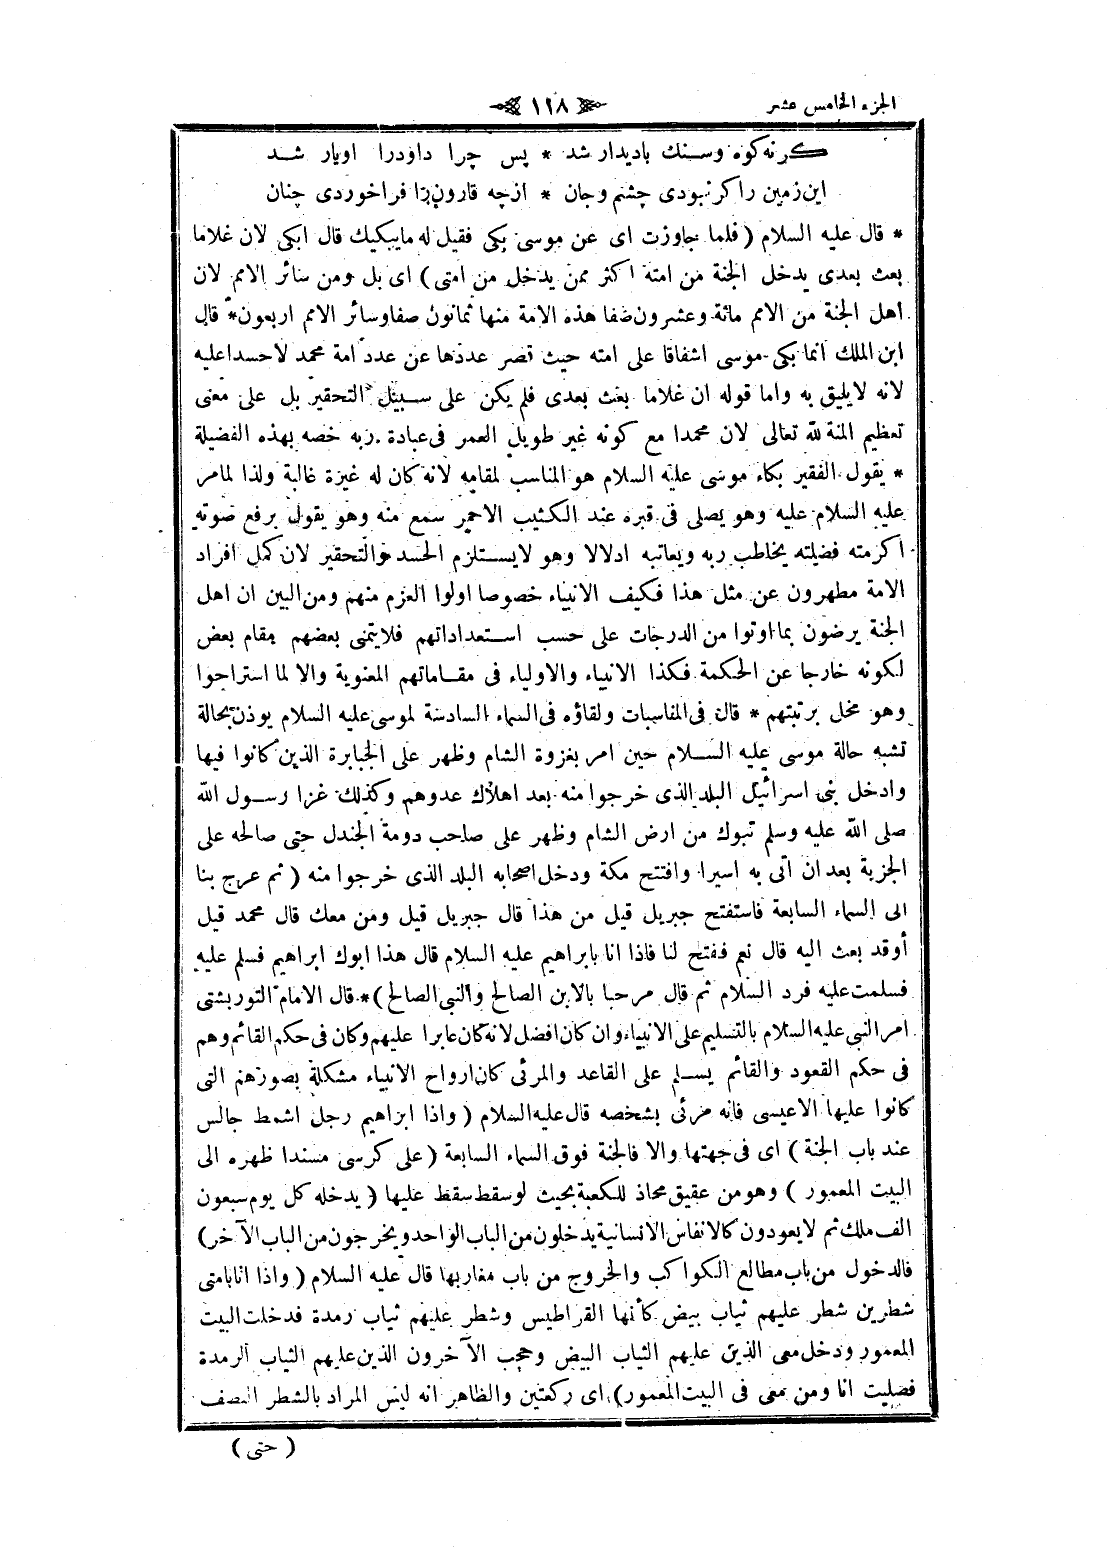 الجزء الخامس عشر
١١٨
كرنه كوه وسنك باديدار شد * پس چرا داودرا اويار شد
اين زمين را كرنبودى چشم وجان * ازچه قارون را فراخوردى چنان
* قال عليه السلام ( فلما جاوزت اى عن موسى بكى فقيل له مايبكيك قال ابكى لان غلاما
بعث بعدى يدخل الجنة من امته اكثر ممن يدخل من امتى ) اى بل ومن سائر الامم لان
اهل الجنة من الامم مائة وعشرون صفا هذه الامة منها ثمانون صفا وسائر الامم اربعون * قال
ابن الملك انما بكى موسى اشفاقا على امته حيث قصر عددها عن عدد امة محمد لاحسدا عليه
لانه لايليق به واما قوله ان غلاما بعث بعدى فلم يكن على سبيل التحقير بل على معنى
تعظيم المنة لله تعالى لان محمدا مع كونه غير طويل العمر فى عبادة ربه خصه بهذه الفضيلة
* يقول الفقير بكاء موسى عليه السلام هو المناسب لمقامه لانه كان له غيرة غالبة ولذا لمامر
عليه السلام عليه وهو يصلى فى قبره عند الكثيب الاحمر سمع منه وهو يقول برفع صوته
اكرمته فضيلته يخاطب ربه ويعاتبه ادلالا وهو لايستلزم الحسد والتحقير لان كمل افراد
الامة مطهرون عن مثل هذا فكيف الانبياء خصوصا اولوا العزم منهم ومن البين ان اهل
الجنة يرضون بما اوتوا من الدرجات على حسب استعداداتهم فلايتمنى بعضهم مقام بعض
لكونه خارجا عن الحكمة فكذا الانبياء والاولياء فى مقاماتهم المعنوية والا لما استراحوا
وهو مخل برتبتهم * قال فى المناسبات ولقاؤه فى السماء السادسة لموسى عليه السلام يوذن بحالة
تشبه حالة موسى عليه السلام حين امر بغزوة الشام وظهر على الجبابرة الذين كانوا فيها
وادخل بنى اسرائيل البلد الذى خرجوا منه بعد اهلاك عدوهم وكذلك غزا رسول الله
صلى الله عليه وسلم تبوك من ارض الشام وظهر على صاحب دومة الجندل حتى صالحه على
الجزية بعد ان اتى به اسيرا وافتتح مكة ودخل اصحابه البلد الذى خرجوا منه ( ثم عرج بنا
الى السماء السابعة فاستفتح جبريل قيل من هذا قال جبريل قيل ومن معك قال محمد قيل
أوقد بعث اليه قال نعم ففتح لنا فاذا انا بابراهيم عليه السلام قال هذا ابوك ابراهيم فسلم عليه
فسلمت عليه فرد السلام ثم قال مرحبا بالابن الصالح والنبى الصالح ) * قال الامام التوربشتى
امر النبى عليه السلام بالتسليم على الانبياء وان كان افضل لانه كان عابرا عليهم وكان فى حكم القائم وهم
فى حكم القعود والقائم يسلم على القاعد والمرئى كان ارواح الانبياء مشكلة بصورهم التى
كانوا عليها الاعيسى فانه مرئى بشخصه قال عليه السلام ( واذا ابراهيم رجل اشمط جالس
عند باب الجنة ) اى فى جهتها والا فالجنة فوق السماء السابعة ( على كرسى مسندا ظهره الى
البيت المعمور ) وهو من عقيق محاذ للكعبة بحيث لوسقط سقط عليها ( يدخله كل يوم سبعون
الف ملك ثم لايعودون كالانفاس الانسانية يدخلون من الباب الواحد ويخرجون من الباب الآخر )
فالدخول من باب مطالع الكواكب والخروج من باب مغاربها قال عليه السلام ( واذا انا بامتى
شطرين شطر عليهم ثياب بيض كأنها القراطيس وشطر عليهم ثياب رمدة فدخلت البيت
المعمور ودخل معى الذين عليهم الثياب البيض وحجب الآخرون الذين عليهم الثياب الرمدة
فصليت انا ومن معى فى البيت المعمور ) اى ركعتين والظاهر انه ليس المراد بالشطر النصف
( حتى )